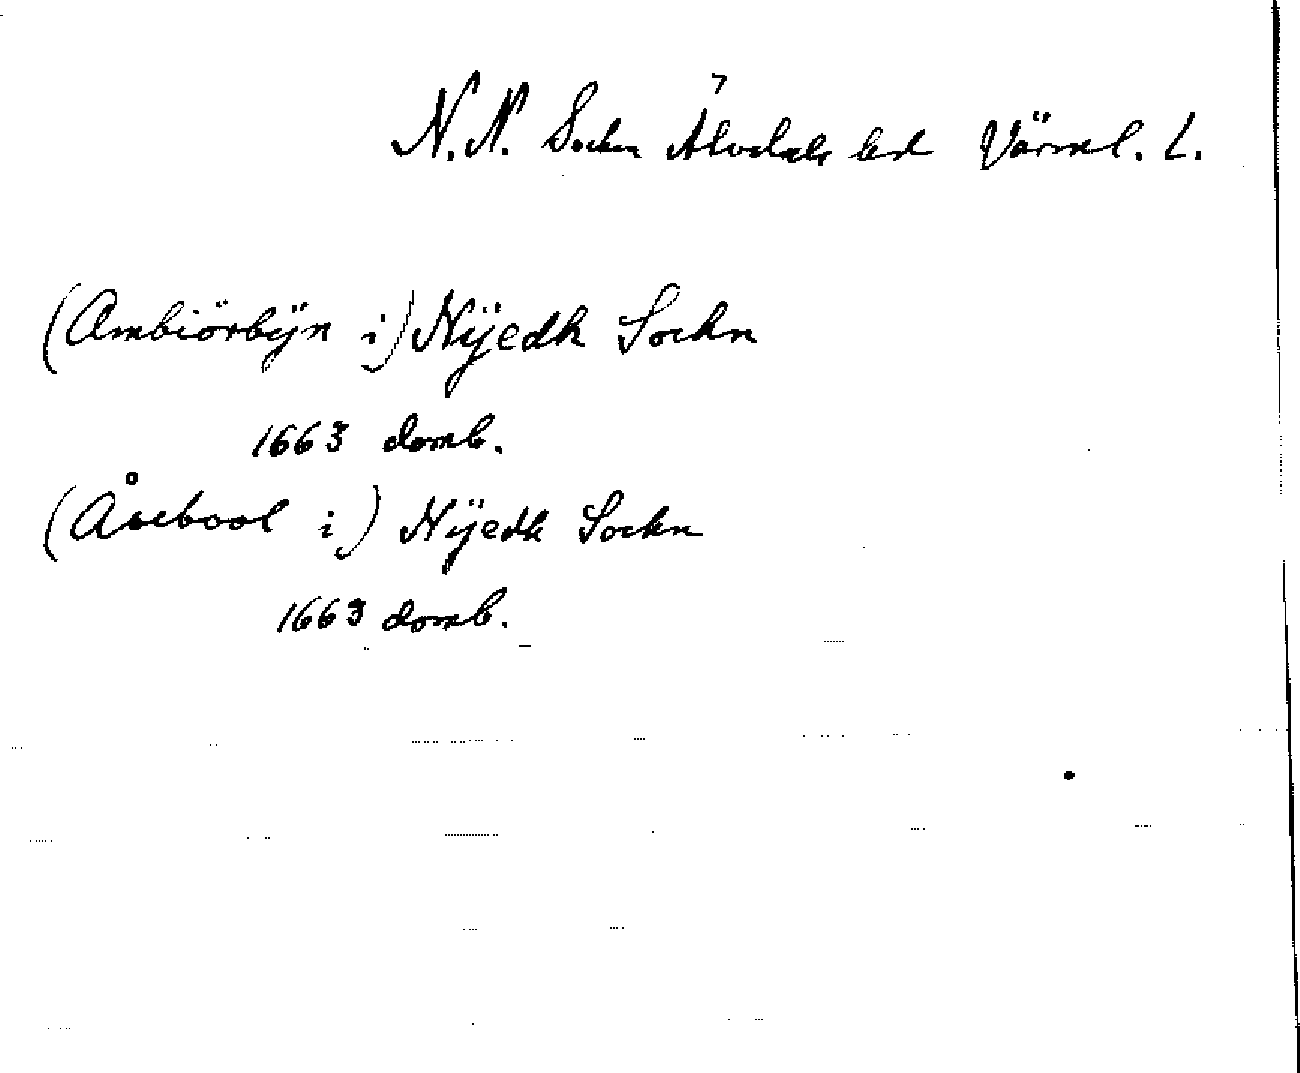 N.N. Socken Älvdals hd Värml. L.
(Ambiörbÿn i) Nÿedh Sockn
1663 domb.
(Åsebool i) Nÿedh Sockn
1663 domb.